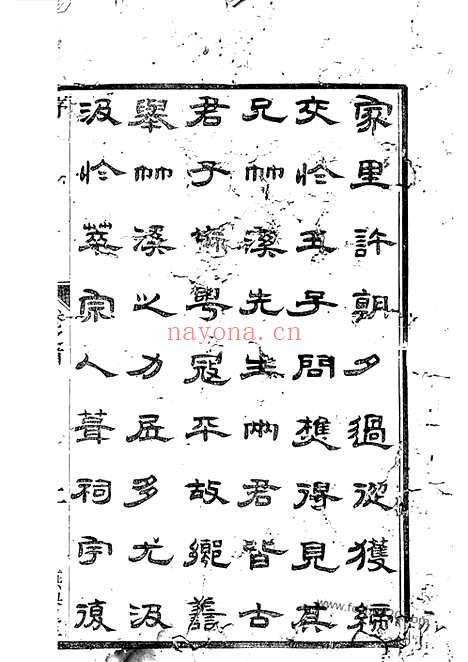 家里許朝夕過從獲締
交於玉子問樵得見其
兄竹溪先生兩君皆古
君子 粤寇平故鄉
舉竹溪之力居多尤汲
汲於萃宗人葺祠宇復
序
nayona.cn